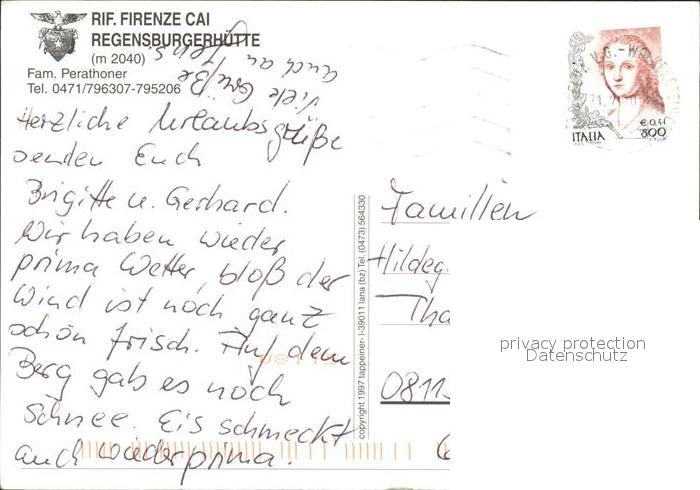 RIF. FIRENZE CAI
REGENSBURGERHÜTTE
(m 2040)
Fam. Perathoner
Tel. 0471/796307-795206
Viele Grüße
auch an
Herzliche Urlaubsgrüße
senden Euch
Brigitte u. Gerhard.
Wir haben wieder
prima Wetter, bloß der
Wind ist noch ganz
schön frisch. Auf dem
Berg gab es noch
Schnee. Eis schmeckt
auch wieder prima.
copyright 1997 tappeiner- I-39011 lana (bz) Tel. (0473) 564330
ITALIA
€ 0,41
800
Familien
Hildeg.
Tha
0811
privacy protection
Datenschutz